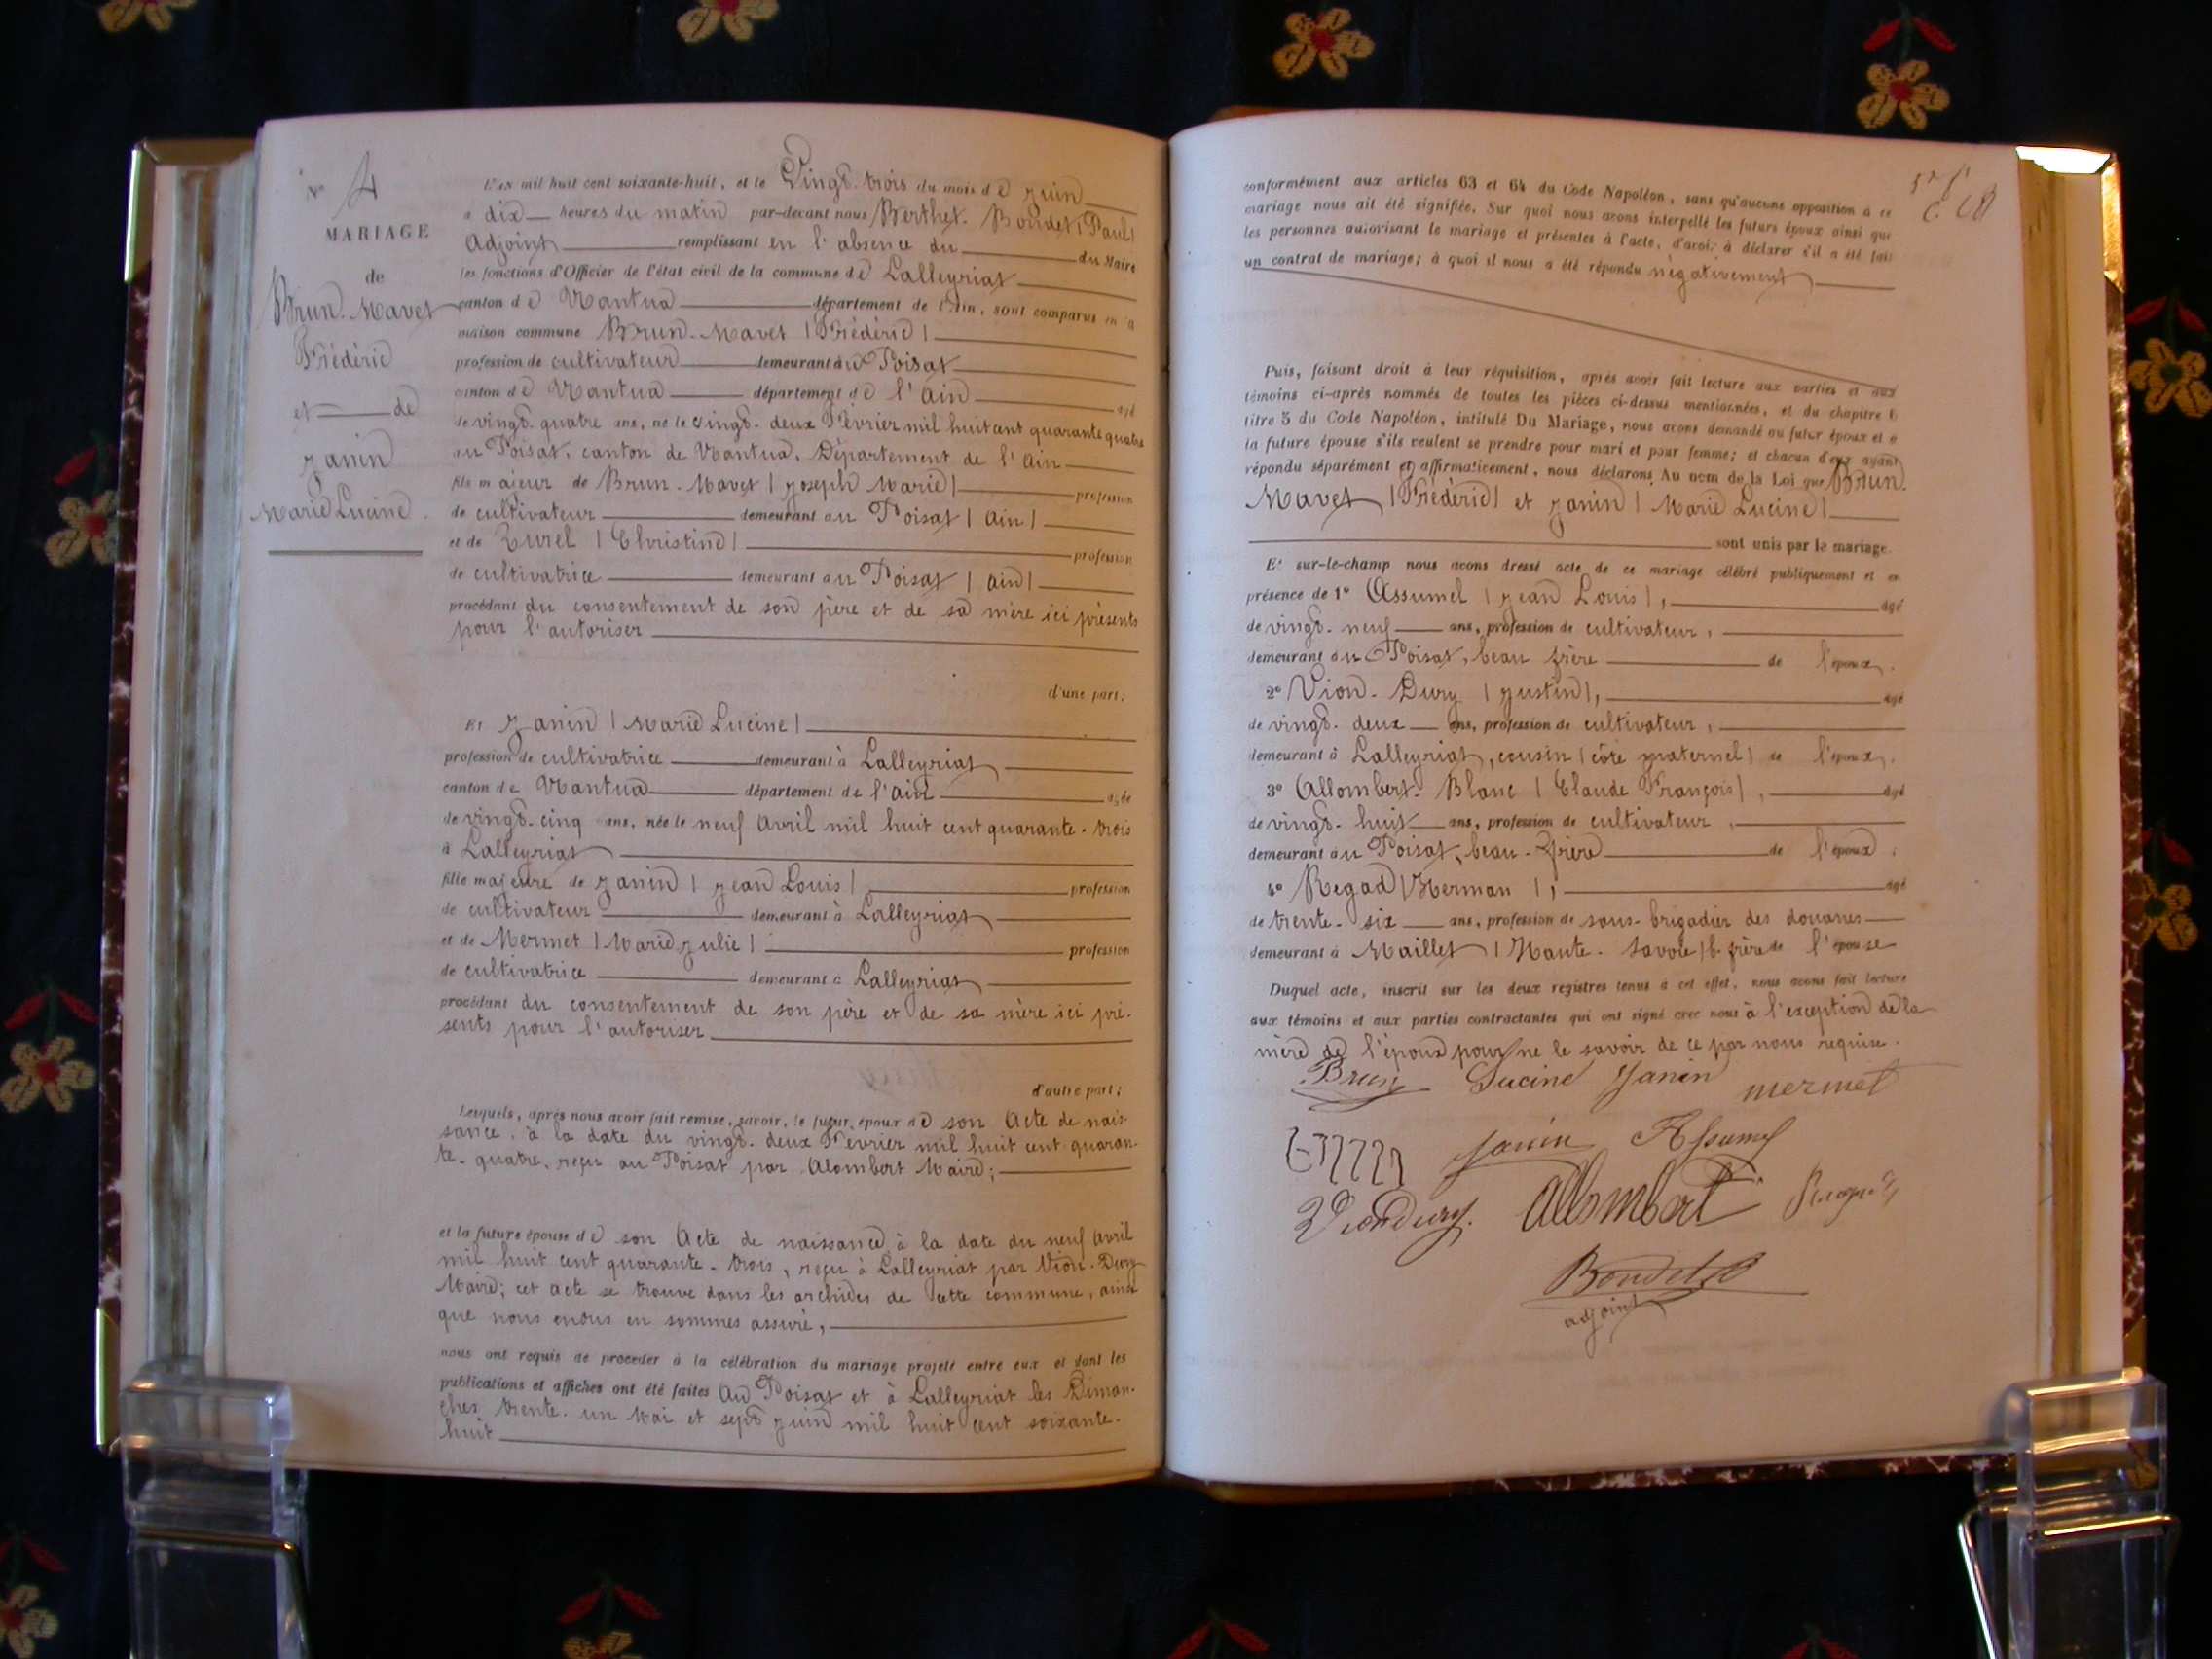 N° 4
MARIAGE
de
Brun-Mavet
Frédéric
et de
Janin
Marie Lucine.
L'an mil huit cent soixante-huit, et le Vingt-trois du mois de Juin
à dix heures du matin par-devant nous Berthet-Bondet (Paul)
Adjoint remplissant en l'absence du du Maire
les fonctions d'Officier de l'état civil de la commune de Lalleyriat
canton de Nantua département de l'Ain, sont comparus en la
maison commune Brun-Mavet (Frédéric)
profession de cultivateur demeurant au Poisat
canton de Nantua département de l'Ain âgé
de vingt-quatre ans, né le vingt-deux Février mil huit cent quarante quatre
au Poisat, canton de Nantua, Département de l'Ain
fils majeur de Brun-Mavet (Joseph Marie) profession
de cultivateur demeurant au Poisat (Ain)
et de Turel (Christine) profession
de cultivatrice demeurant au Poisat (Ain)
procédant du consentement de son père et de sa mère ici présents
pour l'autoriser
d'une part;
Et Janin (Marie Lucine)
profession de cultivatrice demeurant à Lalleyriat
canton de Nantua département de l'Ain âgée
de vingt-cinq ans, née le neuf Avril mil huit cent quarante-trois
à Lalleyriat
fille majeure de Janin (Jean Louis) profession
de cultivateur demeurant à Lalleyriat
et de Mermet (Marie Julie) profession
de cultivatrice demeurant à Lalleyriat
procédant du consentement de son père et de sa mère ici pré-
sents pour l'autoriser
d'autre part;
Lesquels, après nous avoir fait remise, savoir, le futur époux de son Acte de nais-
sance, à la date du vingt-deux Février mil huit cent quaran-
te-quatre, reçu au Poisat par Alombert Maire;
et la future épouse de son Acte de naissance à la date du neuf Avril
mil huit cent quarante-trois, reçu à Lalleyriat par Vion-Dury
Maire; cet acte se trouve dans les archives de cette commune, ainsi
que nous en sommes assuré,
nous ont requis de procéder à la célébration du mariage projeté entre eux et dont les
publications et affiches ont été faites au Poisat et à Lalleyriat les Diman-
ches trente-un Mai et sept Juin mil huit cent soixante-
huit
conformément aux articles 63 et 64 du Code Napoléon, sans qu'aucune opposition à ce
mariage nous ait été signifiée. Sur quoi nous avons interpellé les futurs époux ainsi que
les personnes autorisant le mariage et présentes à l'acte, d'avoir à déclarer s'il a été fait
un contrat de mariage; à quoi il nous a été répondu négativement
Puis, faisant droit à leur réquisition, après avoir fait lecture aux parties et aux
témoins ci-après nommés de toutes les pièces ci-dessus mentionnées, et du chapitre 6
titre 5 du Code Napoléon, intitulé Du Mariage, nous avons demandé au futur époux et à
la future épouse s'ils veulent se prendre pour mari et pour femme; et chacun d'eux ayant
répondu séparément et affirmativement, nous déclarons Au nom de la Loi que Brun-
Mavet (Frédéric) et Janin (Marie Lucine)
sont unis par le mariage.
Et sur-le-champ nous avons dressé acte de ce mariage célébré publiquement et en
présence de 1° Assumel (Jean Louis), âgé
de vingt-neuf ans, profession de cultivateur,
demeurant au Poisat, beau frère de l'époux.
2° Vion-Dury (Justin), âgé
de vingt-deux ans, profession de cultivateur,
demeurant à Lalleyriat, cousin (côté maternel) de l'époux.
3° Allombert-Blanc (Claude François), âgé
de vingt-huit ans, profession de cultivateur,
demeurant au Poisat, beau-frère de l'époux;
4° Regad (Herman), âgé
de trente-six ans, profession de sous-brigadier des douanes
demeurant à Maillet (Haute-Savoie) b. frère de l'épouse
Duquel acte, inscrit sur les deux registres tenus à cet effet, nous avons fait lecture
aux témoins et aux parties contractantes qui ont signé avec nous à l'exception de la
mère de l'époux pour ne le savoir de ce par nous requise.
Brun Lucine Janin mermet
Janin Assumel
Viondury Allombert
Bondet P
adjoint